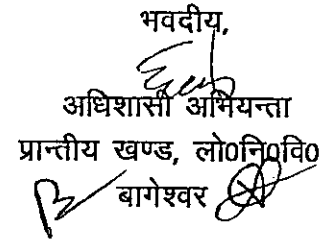 भवदीय,
अधिशासी अभियन्ता
प्रान्तीय खण्ड, लो0नि0वि0
बागेश्वर